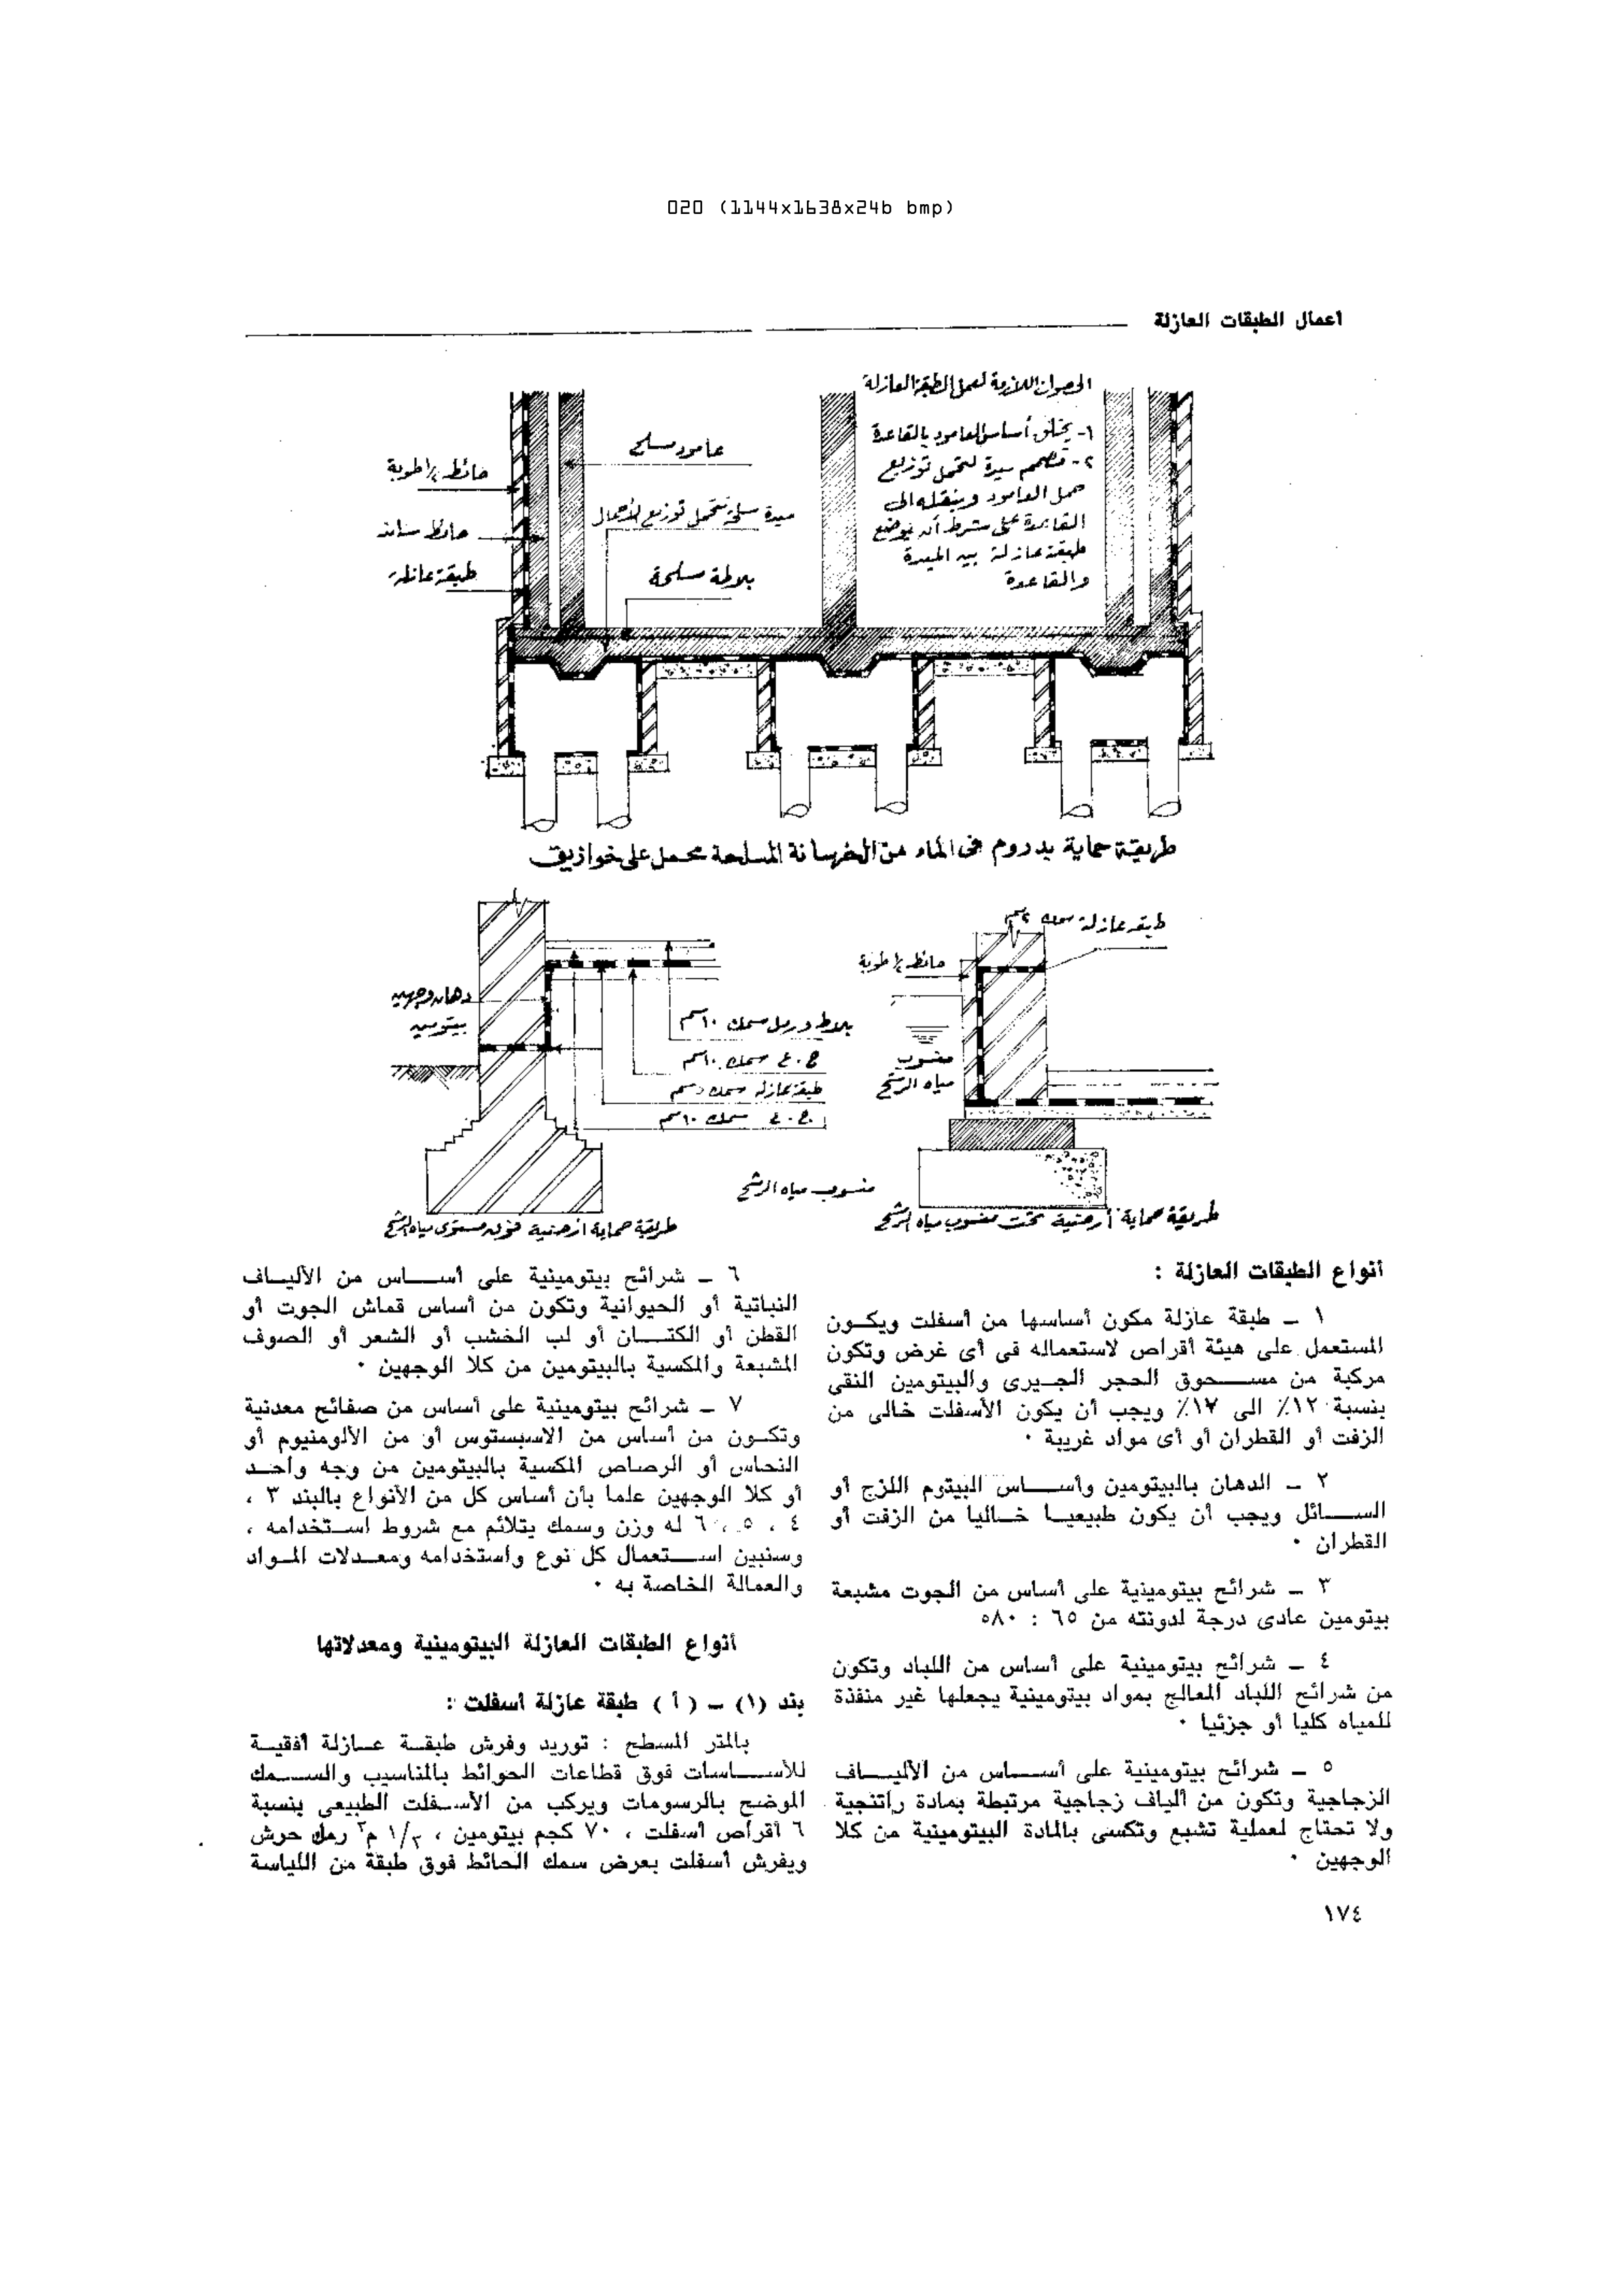 020 (1144x1638x24b bmp)
أعمال الطبقات العازلة
الخطوات اللازمة لعمل الطبقة العازلة
١- أساس العامود بالقاعدة
٢- تصمم ميدة لتحمل توزيع
حمل العامود وينقله الى
القاعدة على شرط أن يوضع
طبقة عازلة بين الميدة
والقاعدة
عامود مسلح
ميدة مسلح تتحمل توزيع الأحمال
بلاطة مسلحة
حائط رطوبة
حائط ساند
طبقة عازلة
طريقة حماية بدروم فى الماء من الخرسانة المسلحة محمل على خوازيق
دهان وجهين
بيتومين
بلاط ورمل سمك ١٠سم
خ.ع سمك ١٠سم
طبقة عازلة سمك ٢سم
خ.ع سمك ١٠سم
منسوب مياه الرشح
طريقة حماية ارضية فوق مستوى مياه الرشح
طبقة عازلة سمك ٢سم
حائط رطوبة
منسوب
مياه الرشح
طريقة حماية أرضية تحت منسوب مياه الرشح
أنواع الطبقات العازلة :
١ – طبقة عازلة مكون أساسها من أسفلت ويكون
المستعمل على هيئة أقراص لاستعماله فى أى غرض وتكون
مركبة من مسحوق الحجر الجيرى والبيتومين النقى
بنسبة ١٢٪ الى ١٧٪ ويجب أن يكون الأسفلت خالى من
الزفت أو القطران أو أى مواد غريبة ٠
٢ – الدهان بالبيتومين وأساس البيتوم اللزج أو
السائل ويجب أن يكون طبيعيا خاليا من الزفت أو
القطران ٠
٣ – شرائح بيتومينية على أساس من الجوت مشبعة
بيتومين عادى درجة لدونته من ٦٥ : ٨٠°
٤ – شرائح بيتومينية على أساس من اللباد وتكون
من شرائح اللباد المعالج بمواد بيتومينية يجعلها غير منفذة
للمياه كليا أو جزئيا ٠
٥ – شرائح بيتومينية على أساس من الألياف
الزجاجية وتكون من ألياف زجاجية مرتبطة بمادة راتنجية
ولا تحتاج لعملية تشبع وتكسى بالمادة البيتومينية من كلا
الوجهين ٠
٦ – شرائح بيتومينية على أساس من الألياف
النباتية أو الحيوانية وتكون من أساس قماش الجوت أو
القطن أو الكتان أو لب الخشب أو الشعر أو الصوف
المشبعة والمكسية بالبيتومين من كلا الوجهين ٠
٧ – شرائح بيتومينية على أساس من صفائح معدنية
وتكون من أساس من الاسبستوس أو من الألومنيوم أو
النحاس أو الرصاص المكسية بالبيتومين من وجه واحد
أو كلا الوجهين علما بأن أساس كل من الأنواع بالبند ٣ ،
٤ ، ٥ ، ٦ له وزن وسمك يتلائم مع شروط استخدامه ،
وسنبين استعمال كل نوع واستخدامه ومعدلات المواد
والعمالة الخاصة به ٠
أنواع الطبقات العازلة البيتومينية ومعدلاتها
بند (١) – ( أ ) طبقة عازلة أسفلت :
بالمتر المسطح : توريد وفرش طبقة عازلة أفقية
للأساسات فوق قطاعات الحوائط بالمناسيب والسمك
الموضح بالرسومات ويركب من الأسفلت الطبيعى بنسبة
٦ أقراص أسفلت ، ٧٠ كجم بيتومين ، ١/٢ م٣ رمل حرش
ويفرش أسفلت بعرض سمك الحائط فوق طبقة من اللياسة
١٧٤